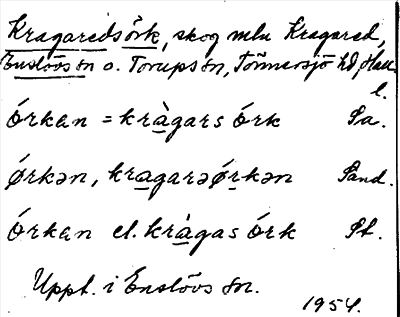 Kragaredsörk, skog mlu Kragared,
Enslövs sn o. Torups sn, Tönnersjö hd, Hall.
l.
órkan = kràgars órk Sa.
órkən, kragarəórkən Sand.
órkan el. kràgas órk St.
Uppt. i Enslövs sn.
1954.